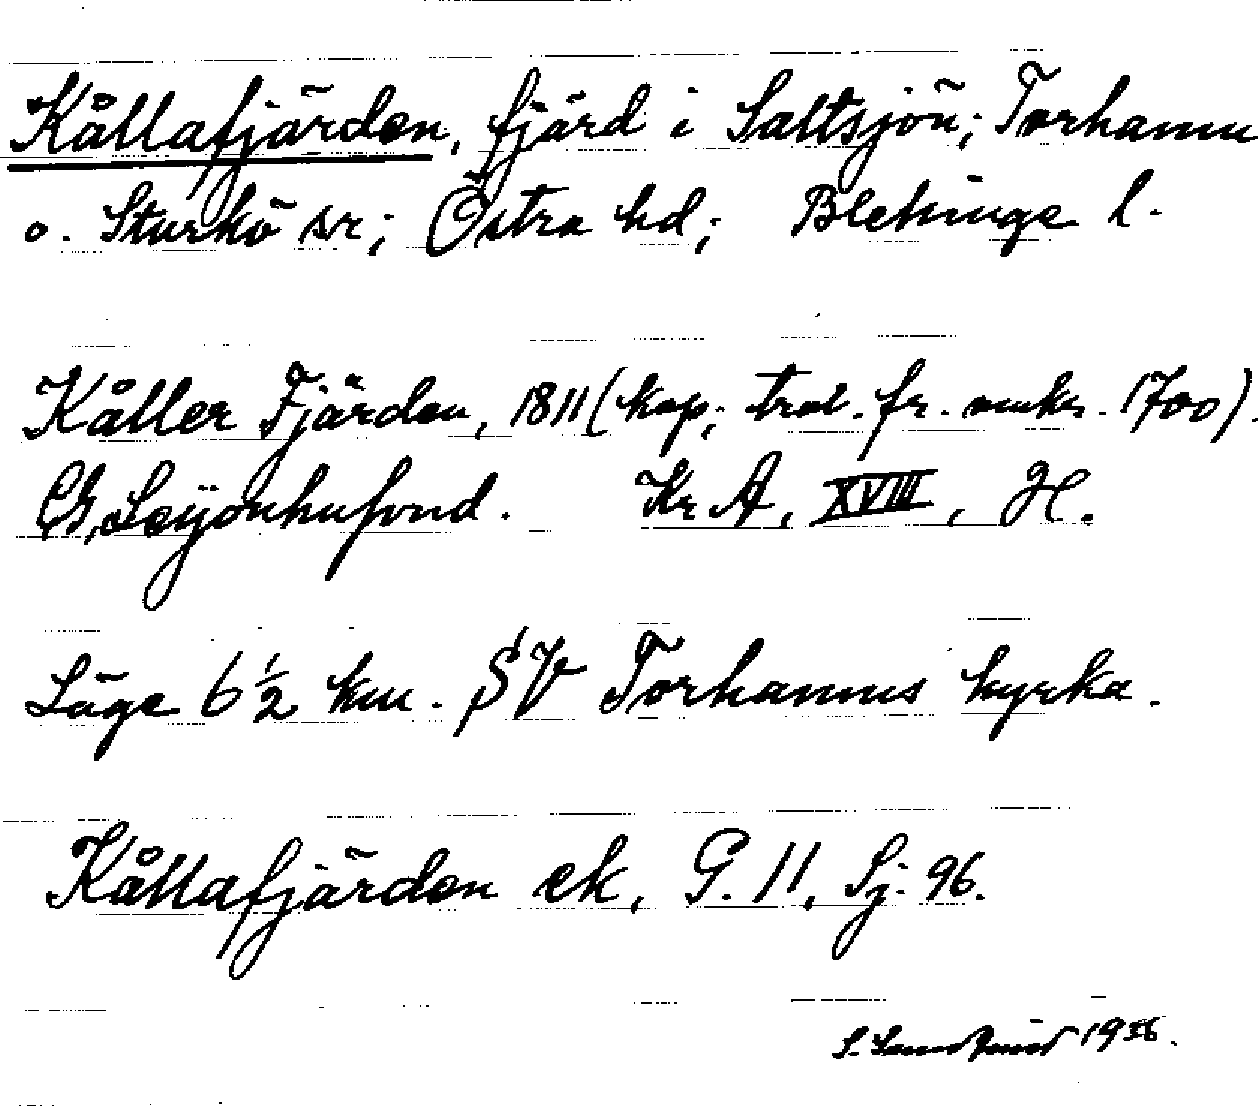 Kållafjärden, fjärd i Saltsjön; Torhamn
o. Sturkö snr; Östra hd; Blekinge l.
Kåller Fjärden, 1811 (kop; trol. fr. omkr. 1700).
G. Leijonhufvud. Kr A, XVIII, H.
Läge 6 ½ km. SV Torhamns kyrka.
Kållafjärden ek, G. 11, Sj. 96.
S. 1956.